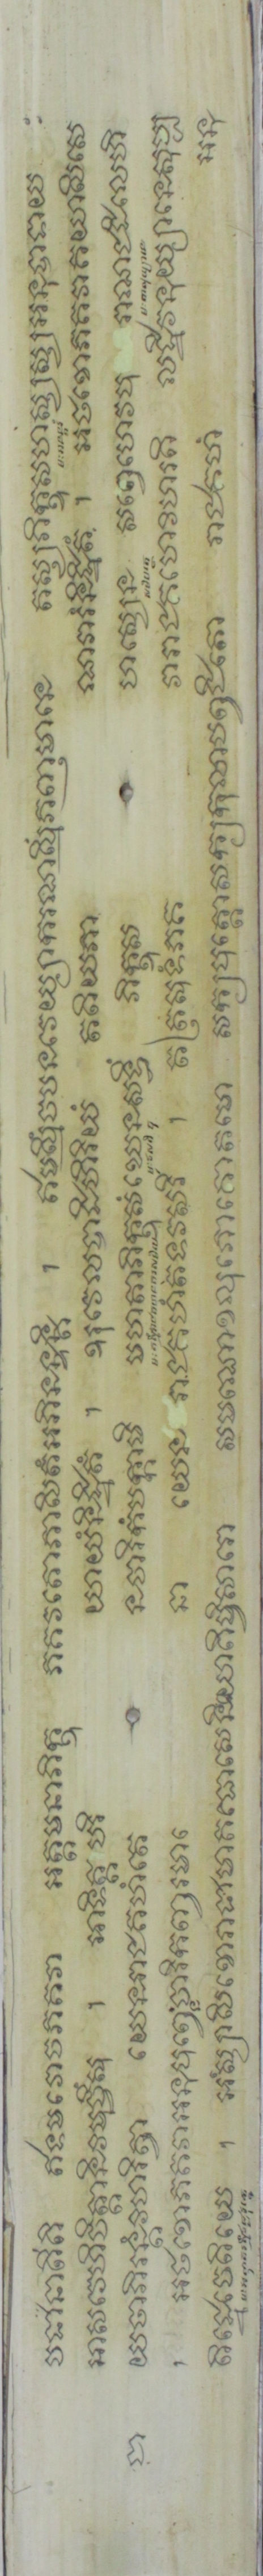 បជានាតីតិ ឥទមវោចភគវា អត្តមនាភិក្ខូ ភគវតោភាសិតំអភិនន្ទន្តិ ។ ឥមស្មិំចបនវេយ្យាករណស្មិំភញ្ញមានេ តស្សភិក្ខុសហស្សស្សអនុបាទាយ
អាសវេហិចិត្តានិវមុច្ចឹសុ ។ អាទិត្តបរិ យាយំនិដ្ឋិតំ ។ ឧរុវេលបាដិហីរិយំ តតិយភា ណវារំនិដ្ឋិតំ ។ អថខោភគវាគយាសិសេ
យថាភិរន្តំវិហរិត្វា យេនរាជគហំតេ នចារិកំបក្កាមិ មហតាភិក្ខុសំឃេនសទ្ធឹ ភិក្ខុស ហស្សេន សព្វេហេវបុ រាណជដិលេហិ
។ អថខោភគវាអនុបុព្វេនចារិកញ្ចរមា នោ យេន រាជគហំតទវសរិ ។ តត្រសុទំភគ វារាជគហេវិហរតិ លដ្ឋិវនុយ្យានេសុប្ប
តិដ្ឋេចេតិយេ ។ អស្សោសិខោរាជាមាគធោសេនិយោពិម្ពិសារោ សមណោខលុភោគោតមោ សក្យបុត្តោសក្យកុលាបព្វជិតោ រាជគហំ អនុ